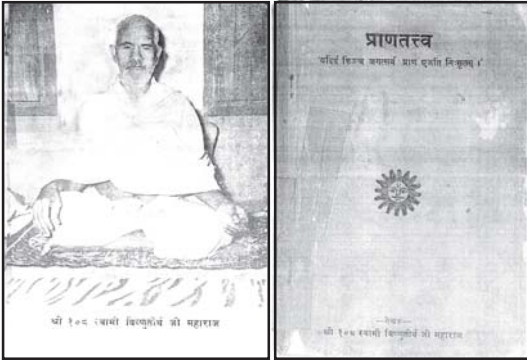 श्री १०८ स्वामी विष्णुतीर्थ जी महाराज
प्राणतत्त्व
'यदिदं किञ्च जगत्सर्वं प्राण एजति निःसृतम् ।'
—लेखक—
श्री १०८ स्वामी विष्णुतीर्थ जी महाराज